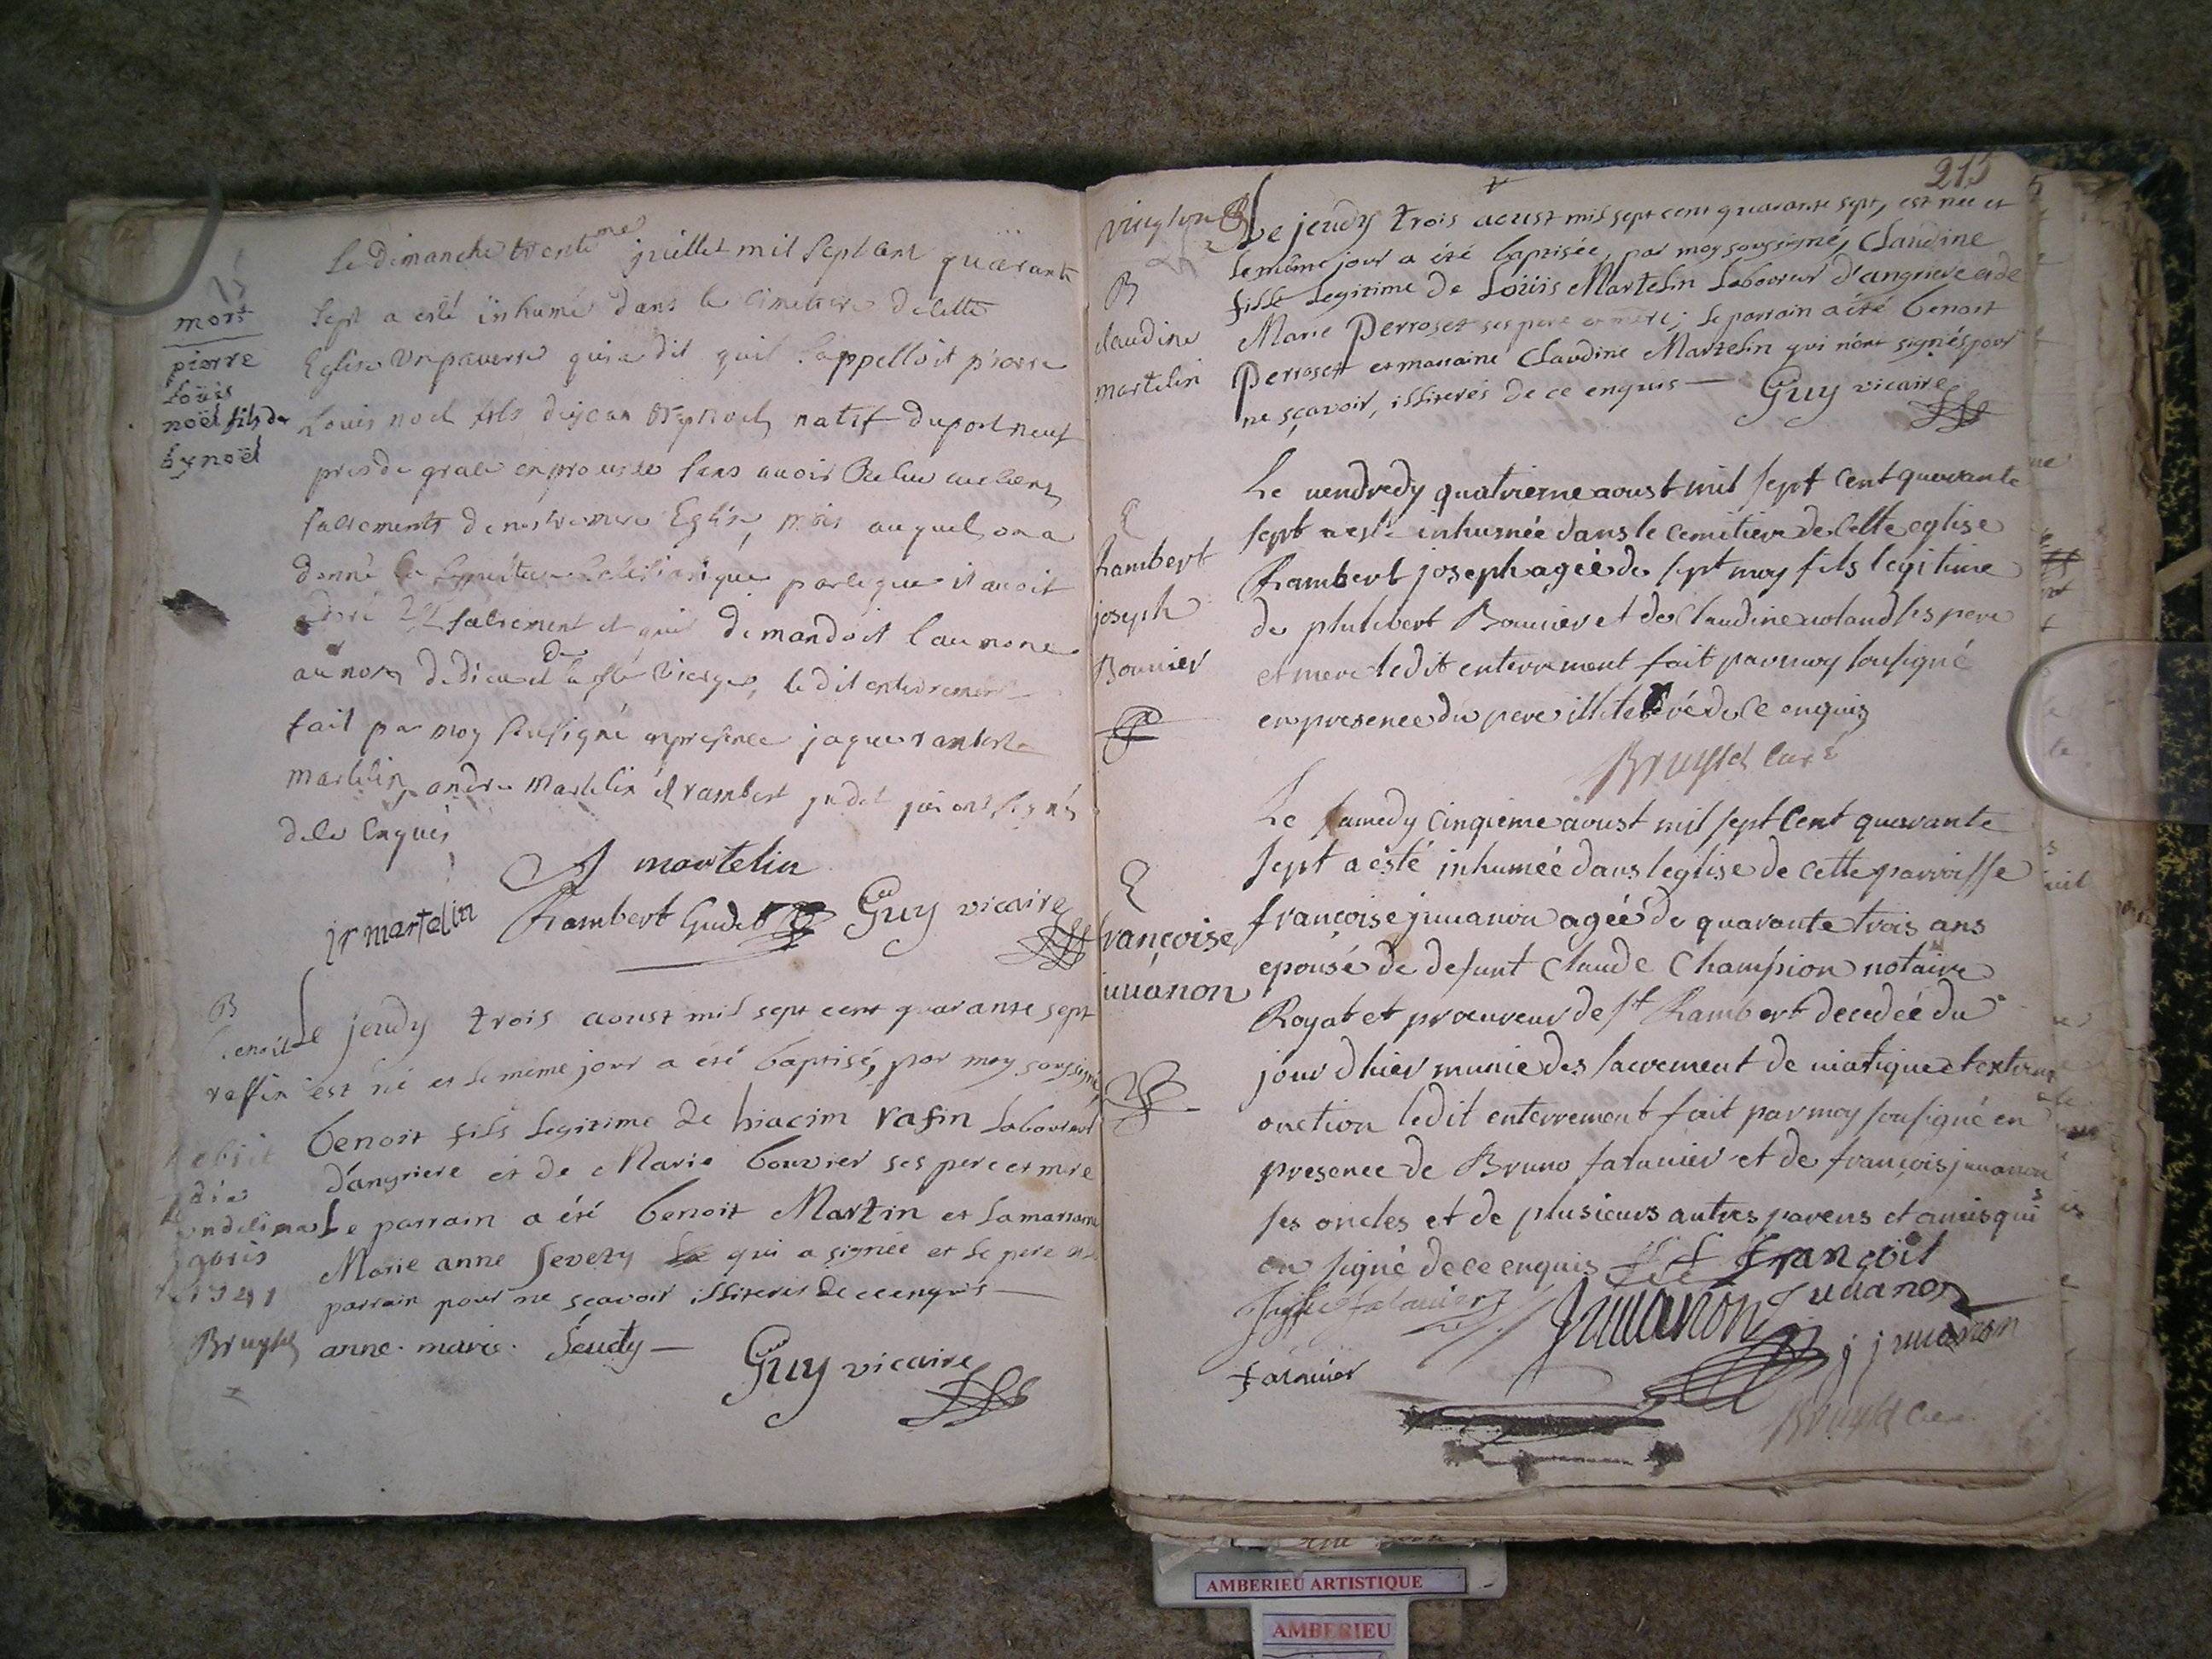 mort
pierre
Loüis
noël fils de
ey noël
Le dimanche trentiéme juillet mil sept cent quarante
sept a esté inhumé dans le cimetiere de cette
Eglise un pauvre qui a dit quil sappelloit pierre
Louis noel fils de jean noel natif du port neuf
pres de grace en provile sans avoir Recu aucuns
sacrements de nostre mere Eglise, mais auquel on a
donné la sepulture Eclesiastique parleque il avoit
adoré le St sacrement et quil demandoit l'aumone
au nom de dieu et de la ste vierge, ledit enterrement
fait par moy sousigné en presence jaque rambert
martelin, andre Martelin et rambert judet qui ont signés
de ce enquis
A martelin
jr martelin Rambert Gudet Guy vicaire
B
benoit
raffin
Le jeudy trois aoust mil sept cent quarante sept
est né et le meme jour a été baptisé, par moy soussigné,
benoit fils legitime de hiacim rafin laboureur
d'angriere et de Marie bouvier ses pere et mere
Le parrain a été benoit Martin et la marraine
Marie anne Sevezy qui a signée et le pere et
parrain pour ne sçavoir illiterés de ce enquis
obiit
die
1791
Bruyset
anne marie Seudy
Guy vicaire
215
B
claudine
martelin
Le jeudy trois aoust mil sept cent quarante sept, est née et
le même jour a été baptisée, par moy soussigné, Claudine
fille legitime de Loüis Martelin laboureur d'angriere et de
Marie Perroset ses pere et mere; le parrain a été benoit
Perroset et marraine Claudine Martelin qui n'ont signés pour
ne sçavoir, illiterés de ce enquis — Guy vicaire
E
Rambert
joseph
Bouvier
Le vendredy quatrieme aoust mil sept cent quarante
sept a esté inhumée dans le cemitiere de cette eglise
Rambert joseph agée de sept moy fils legitime
de philibert Bouvier et de Claudine noland ses pere
et mere ledit enterrement fait par moy sousigné
en presence du pere illiteré de ce enquis
Bruyset curé
E
françoise
juuanon
Le samedy cinqieme aoust mil sept cent quarante
sept a esté inhumée dans l'eglise de cette parroisse
françoise juuanon agéé de quarante trois ans
epousé de defunt Claude Champion notaire
Royal et procureur de St Rambert decedéé du
jour d'hier munie des sacrement de viatique et extreme
onction ledit enterrement fait par moy sousigné en
presence de Bruno faravier et de françois juuanon
ses oncles et de plusieurs autres parens et amis qui
on signé de ce enquis françoit
Juuanon juuanon j juuanon
faravier
Bruyset curé
AMBERIEU ARTISTIQUE
AMBERIEU